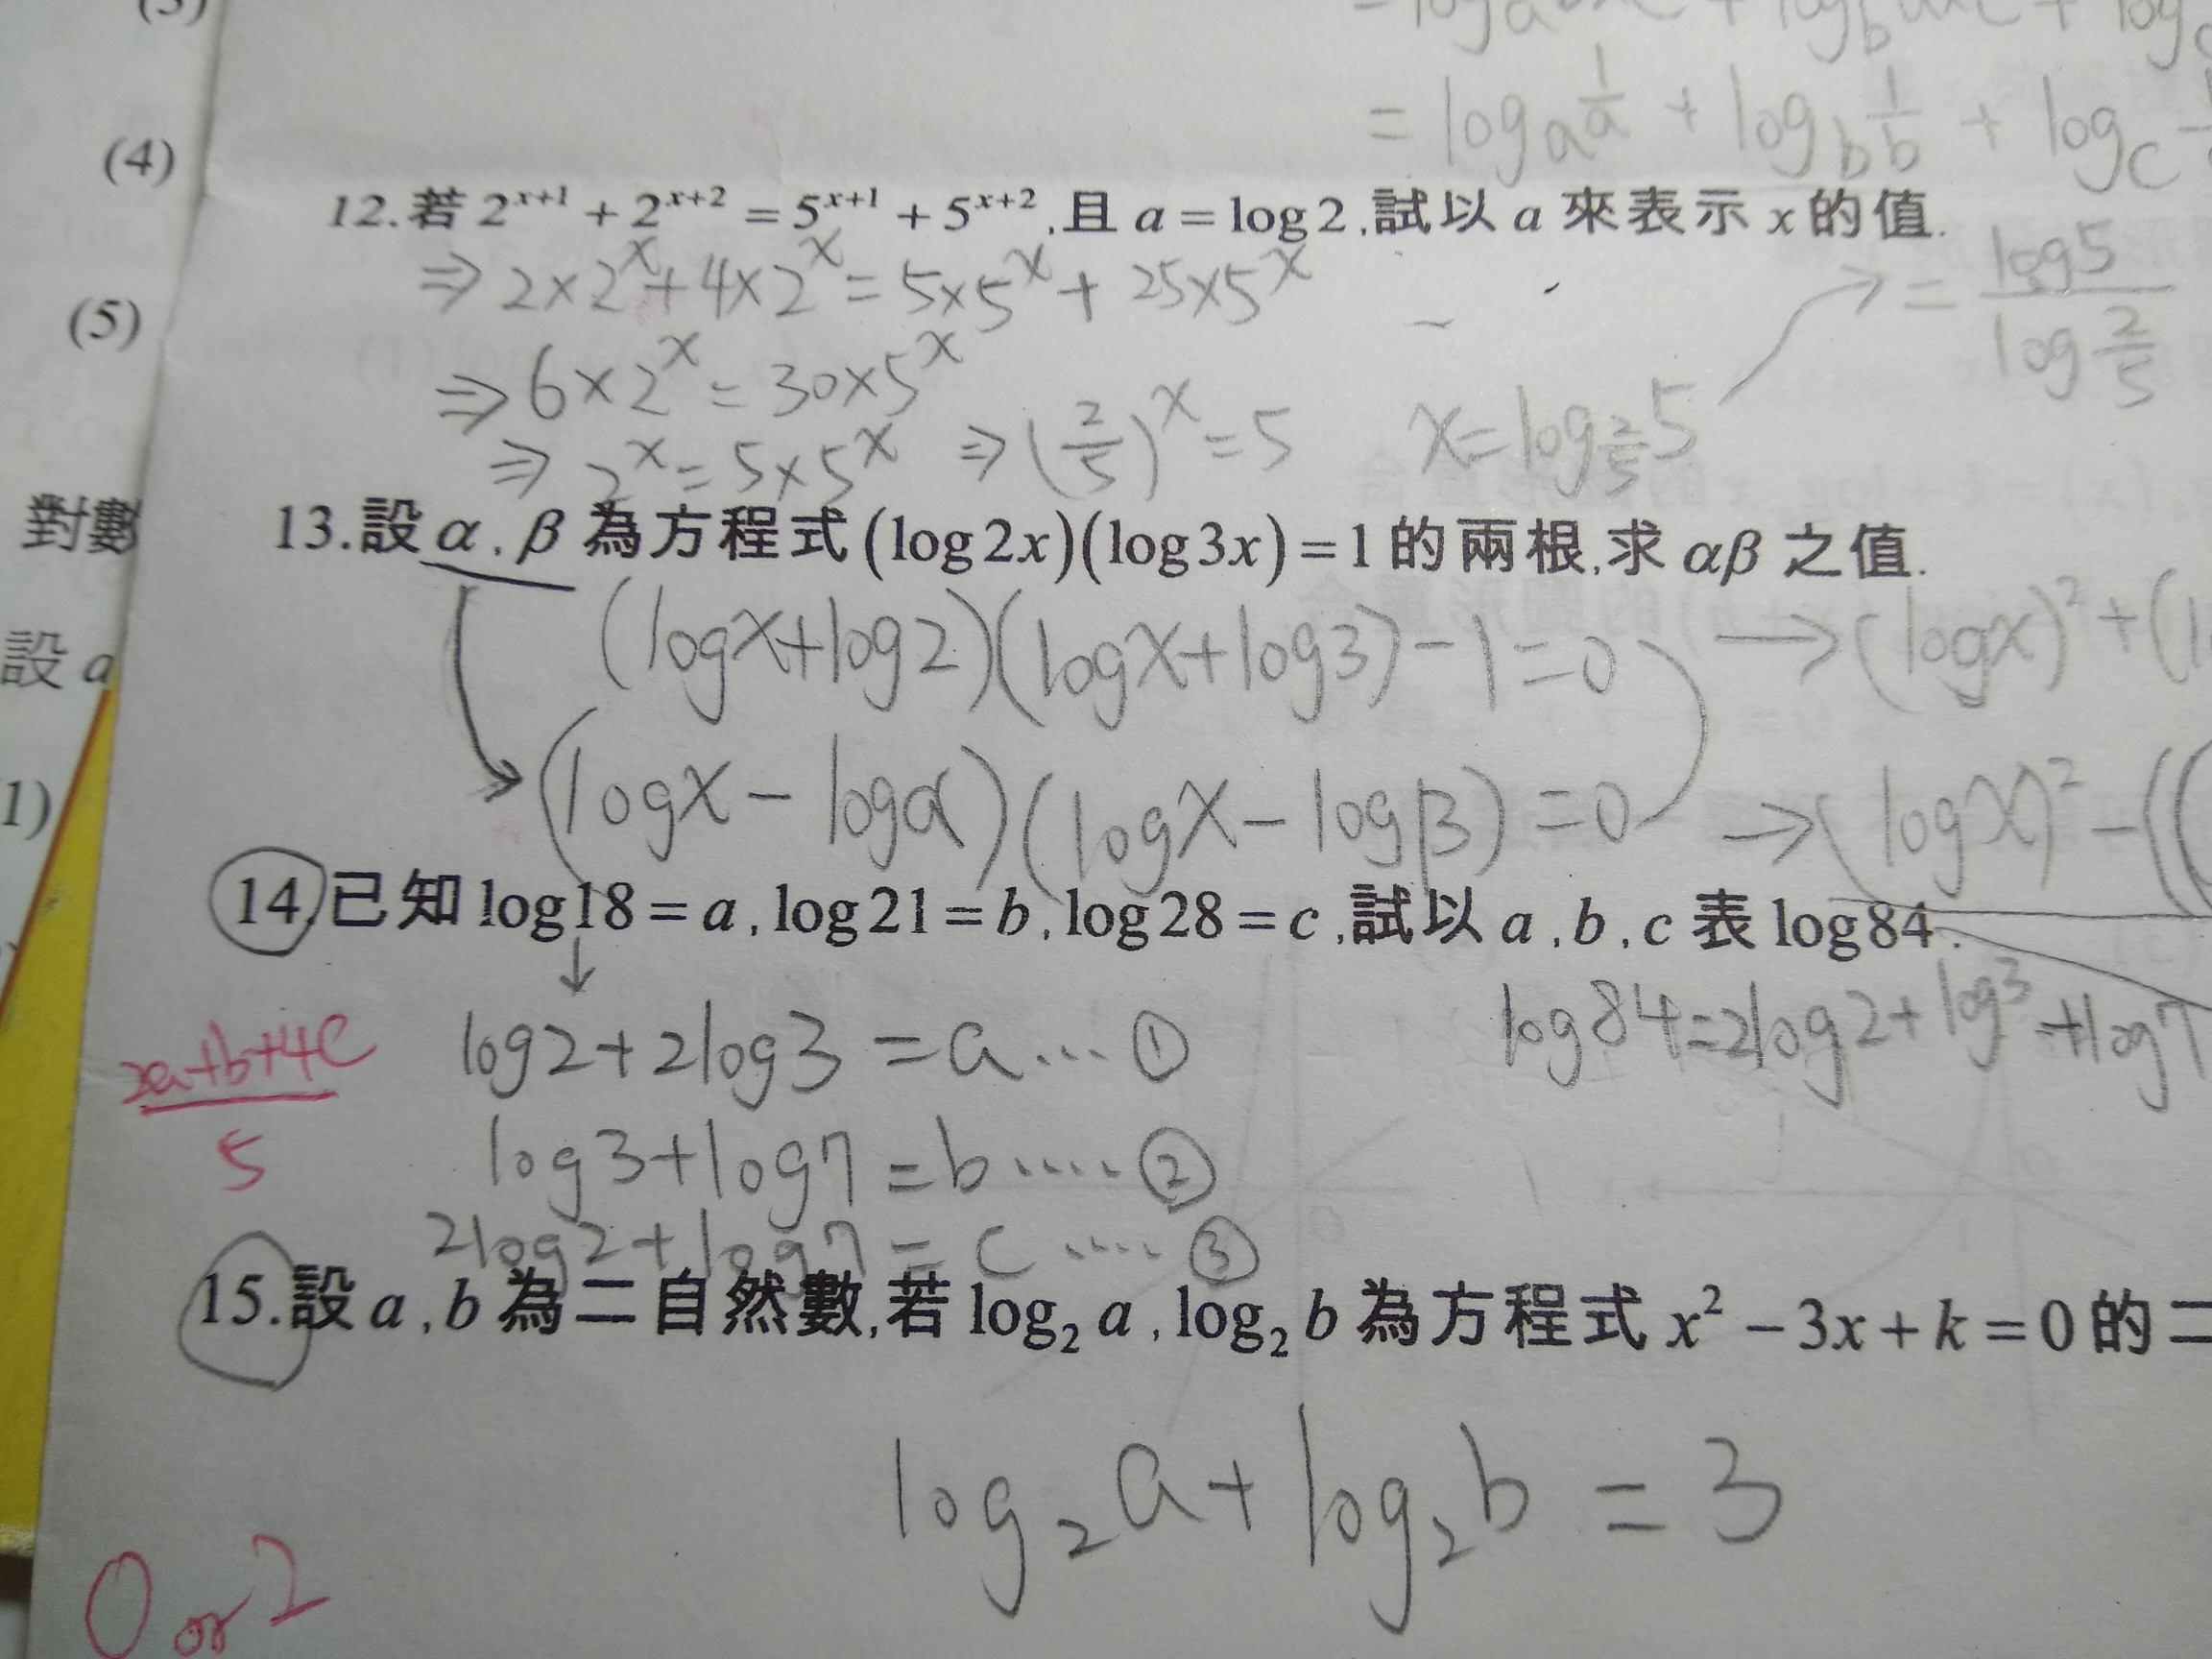 (3)
(4)
(5)
對數
設 a
1)
= log_a 1/a + log_b 1/b + log_c
12.若 2^{x+1} + 2^{x+2} = 5^{x+1} + 5^{x+2},且 a = log 2,試以 a 來表示 x 的值.
⇒ 2×2^x + 4×2^x = 5×5^x + 25×5^x
⇒ 6×2^x = 30×5^x
⇒ 2^x = 5×5^x ⇒ (2/5)^x = 5 x = log_{2/5} 5
= log5 / log 2/5
13.設 α, β 為方程式 (log 2x)(log 3x) = 1 的兩根,求 αβ 之值.
(logx+log2)(logx+log3)-1=0 → (logx)² + (
(logx - logα)(logx - logβ) = 0 → (logx)² - ((
14.已知 log18 = a, log21 = b, log28 = c,試以 a, b, c 表 log84.
log84=2log2+log3+log7
log2+2log3 = a … ①
2a+b+4c / 5
log3+log7 = b …… ②
2log2+log7 = c …… ③
15.設 a, b 為二自然數,若 log₂ a, log₂ b 為方程式 x² - 3x + k = 0 的二
log₂a + log₂b = 3
0 or 2